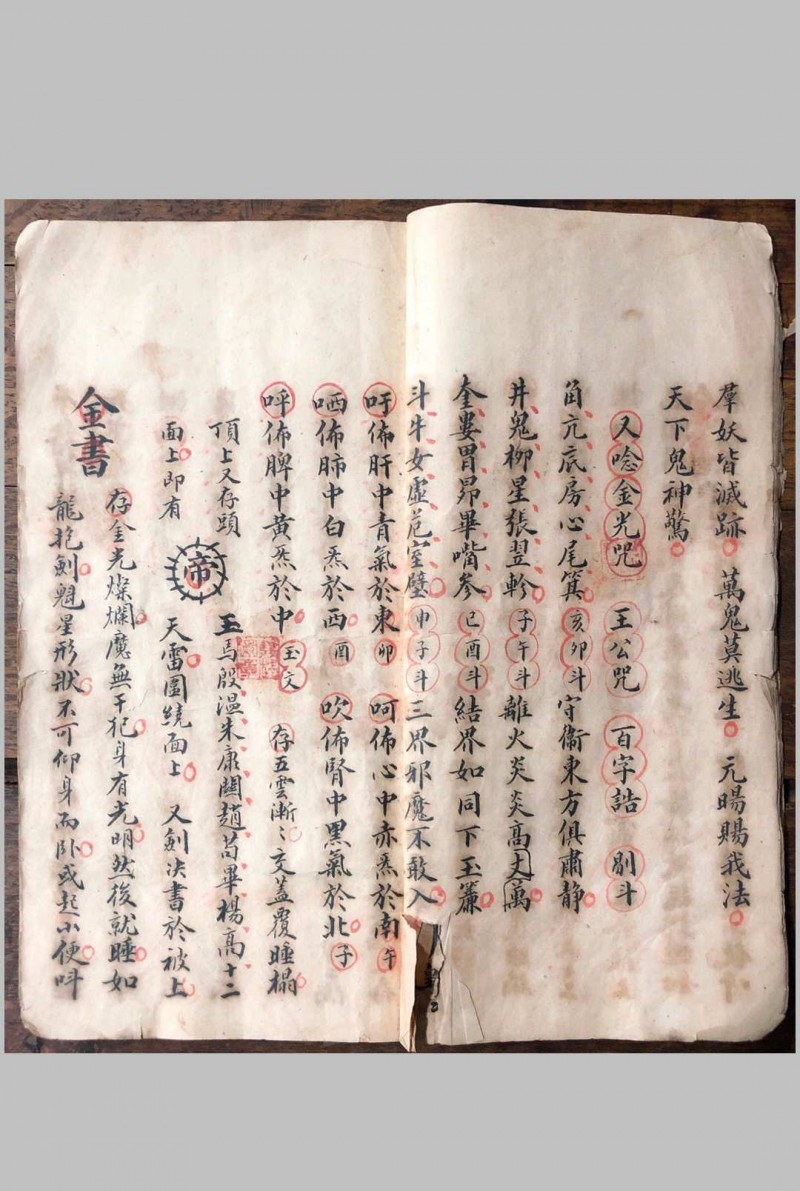 羣妖皆滅跡 萬鬼莫逃生 元暘賜我法
天下鬼神驚
又唸金光咒 王公咒 百字誥 別斗
角亢底房心尾箕 亥卯斗 守衛東方俱肅静
井鬼柳星張翌軫 子午斗 離火炎炎高丈萬
奎婁胃昴畢嘴參 巳酉斗 結界如同下玉簾
斗牛女虛危室壁 申子斗 三界邪魔不敢入
吁佈肝中青氣於東 卯 呵佈心中赤炁於南 午
呬佈肺中白炁於西 酉 吹佈腎中黑氣於北 子
呼佈脾中黄炁於中 玉文 存五雲漸〻交蓋覆睡榻
頂上又存頭 玉 馬殷温朱康關趙苟畢楊高十二
面上即有 帝 天雷圍繞面上 又劍决書於被上
金書 存金光燦爛魔無干犯身有光明然後就睡如
龍抱劍魁星形狀不可仰身而卧或起小便呌